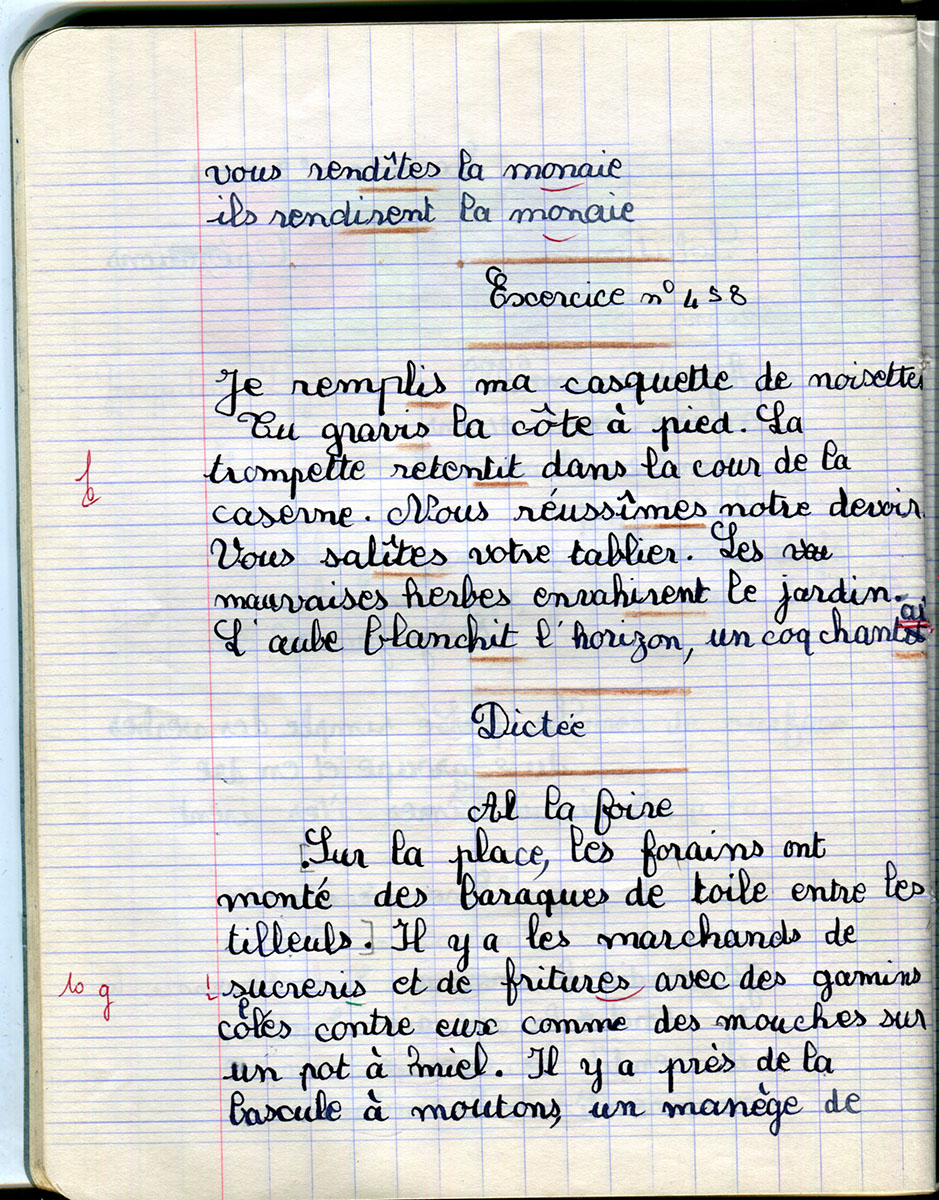 vous rendîtes la monaie
ils rendirent la monaie
Excercice n° 458
Je remplis ma casquette de noisettes
Tu gravis la côte à pied. La
trompette retentit dans la cour de la
caserne. Nous réussîmes notre devoir.
Vous salîtes votre tablier. Les
mauvaises herbes envahirent le jardin.
L'aube blanchit l'horizon, un coq chanta
Dictée
A la foire
[Sur la place, les forains ont
monté des baraques de toile entre les
tilleuls.] Il y a les marchands de
10 g sucreris et de fritures avec des gamins
collés contre eux comme des mouches sur
un pot à miel. Il y a près de la
bascule à moutons, un manège de